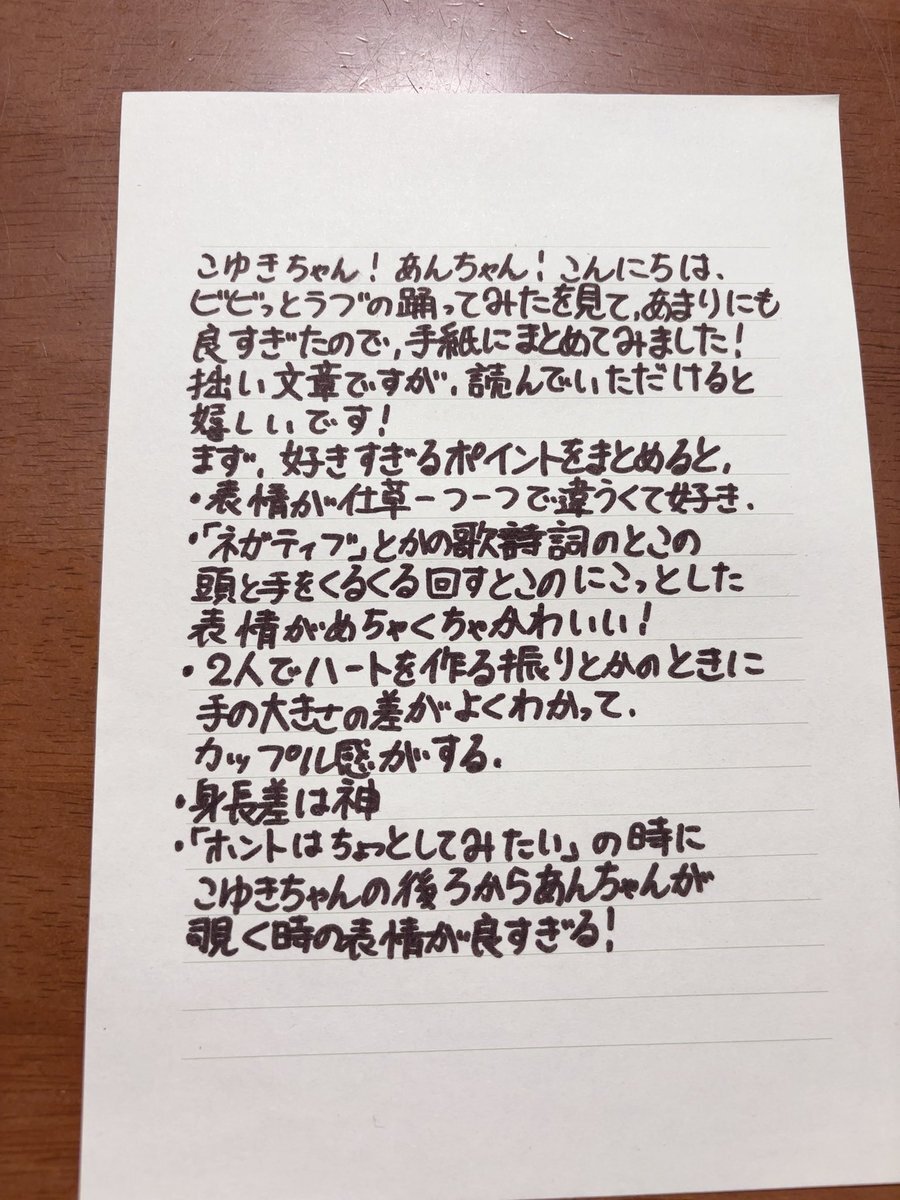 こゆきちゃん！あんちゃん！こんにちは、
ビビっとラブの踊ってみたを見て、あまりにも
良すぎたので、手紙にまとめてみました！
拙い文章ですが、読んでいただけると
嬉しいです！
まず、好きすぎるポイントをまとめると、
・表情が仕草一つ一つで違うくて好き、
・「ネガティブ」とかの歌詩詞のとこの
頭と手をくるくる回すとこのにこっとした
表情がめちゃくちゃかわいい！
・2人でハートを作る振りとかのときに
手の大きさの差がよくわかって、
カップル感がする、
・身長差は神
・「ホントはちょっとしてみたい」の時に
こゆきちゃんの後ろからあんちゃんが
覗く時の表情が良すぎる！